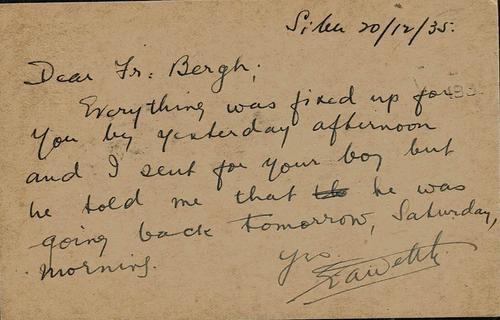 Sibu 20/12/35.
Dear Fr: Bergh,
Everything was fixed up for
you by yesterday afternoon
and I sent for your boy but
he told me that he was
going back tomorrow, Saturday,
morning.
Yrs.